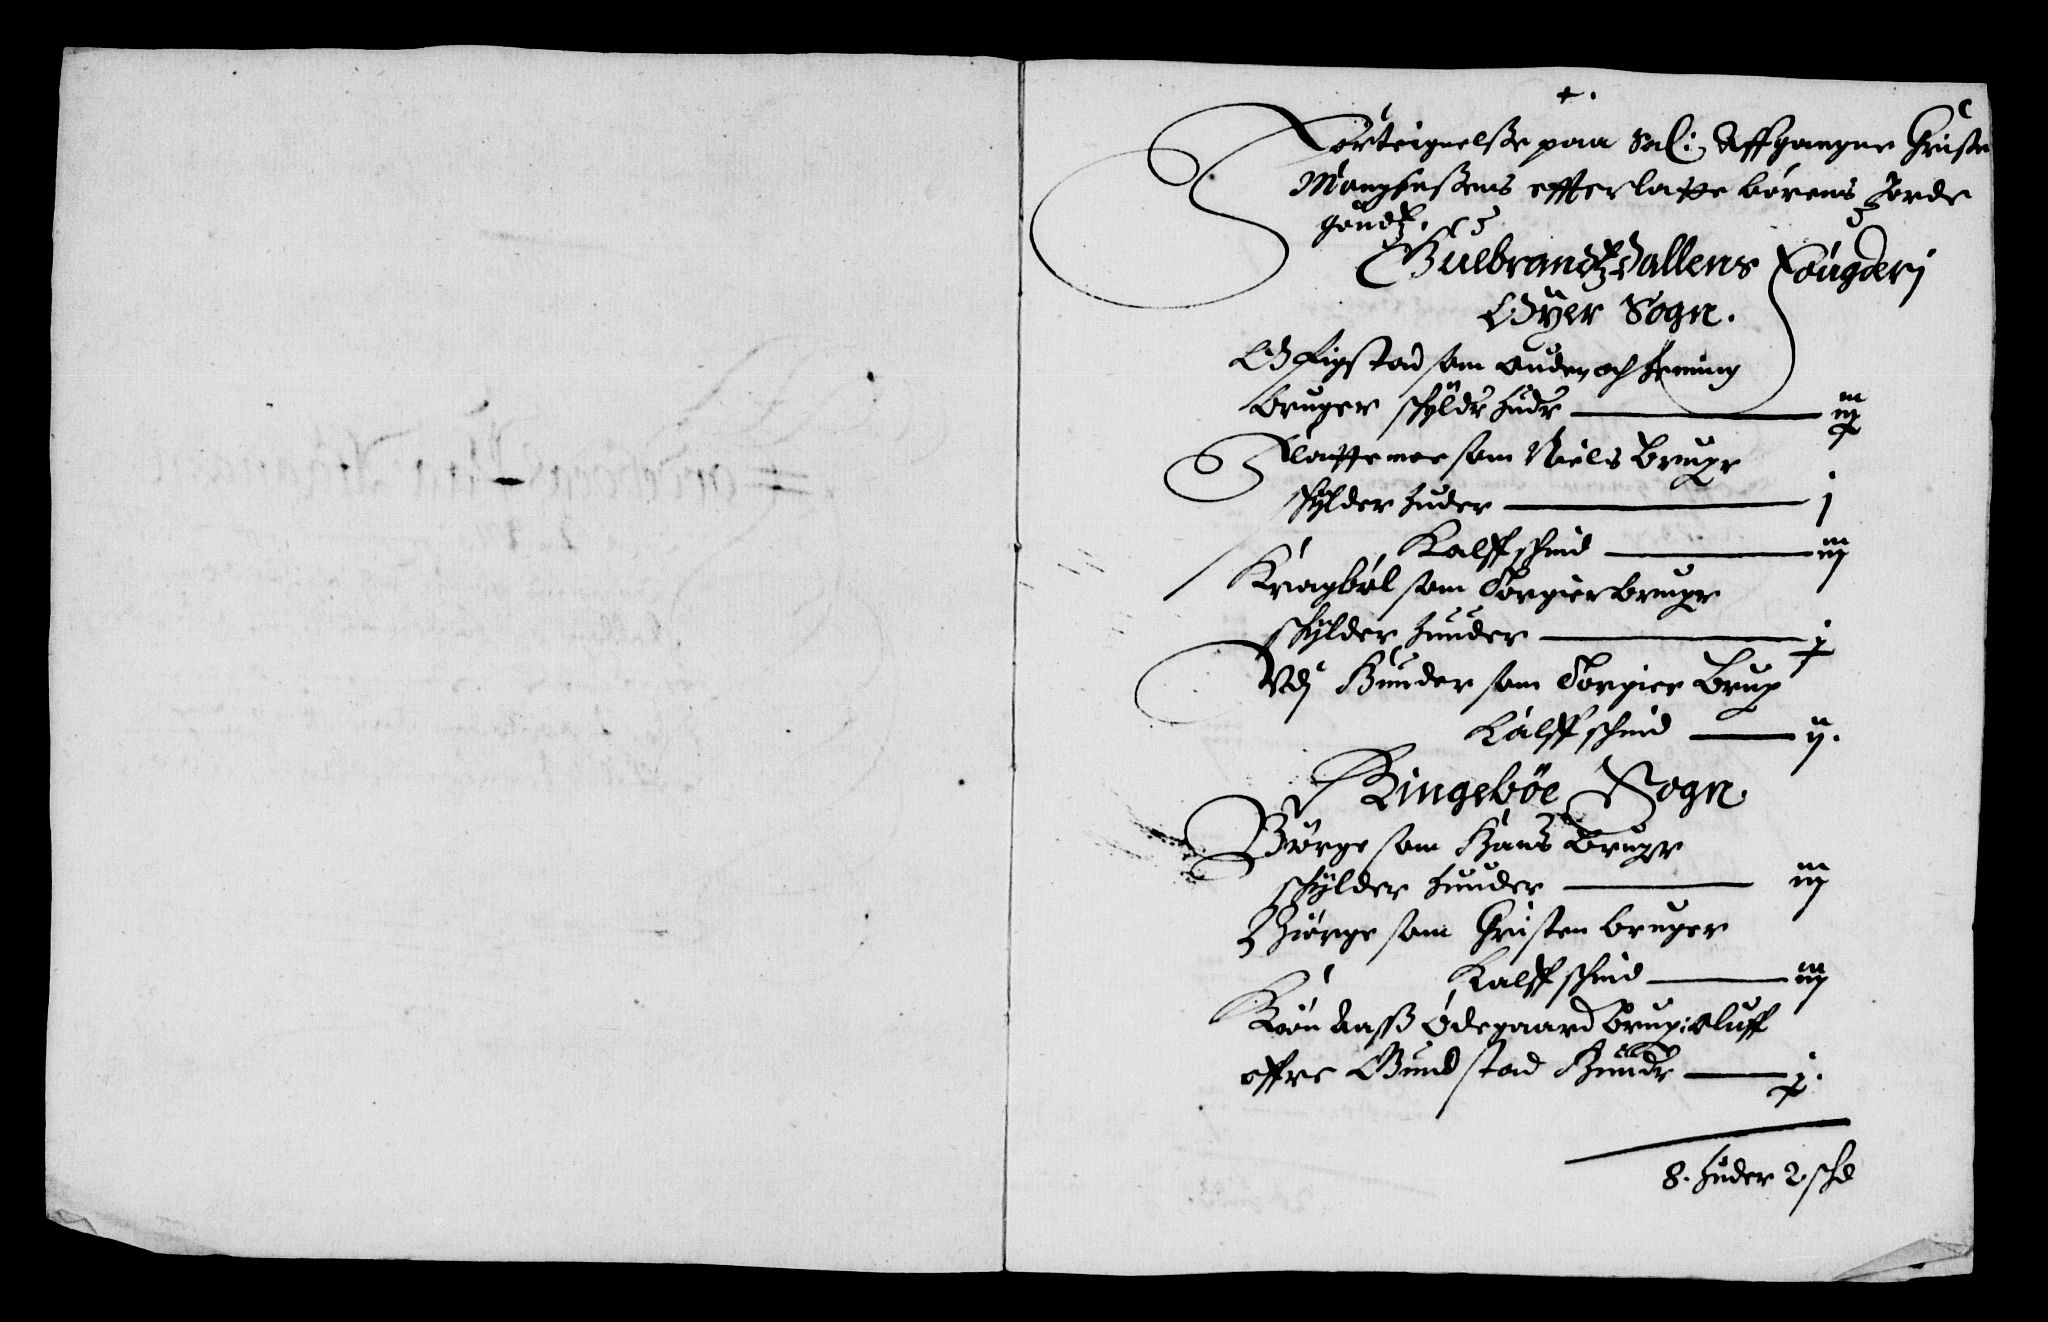 +.
Forteignelße paa Sal: Affgangne Christen
Manghußens effterlatte börens Jorde
goudtz.
Gulbrandtzdallens Fougderj
Öÿer Sogn.
Öfigstad som Ouden och Heming
bruger schÿlder huder iij
Slatteme som Niels Bruger
schÿlder huder j
Kalffschind iij
Kragböl som Torgier bruger
schÿlder huuder j
Vdj Hunder som Torgier Brug
Kalffschind ij.
Ringeböe Sogn.
Biörge som Hans Bruger
schÿlder huuder iij
Biörge som Christen bruger
Kalffschind iij
Ödegaard brug: Oluff
offre Gundstad Hunder j.
8. huder 2 schd